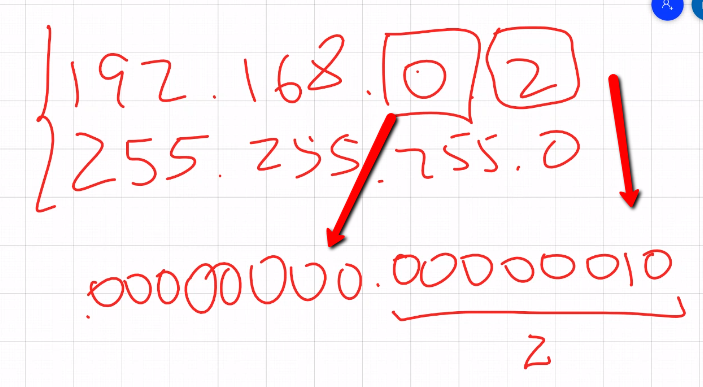 192.168.0 2
255.255.255.0
.00000000.00000010
2